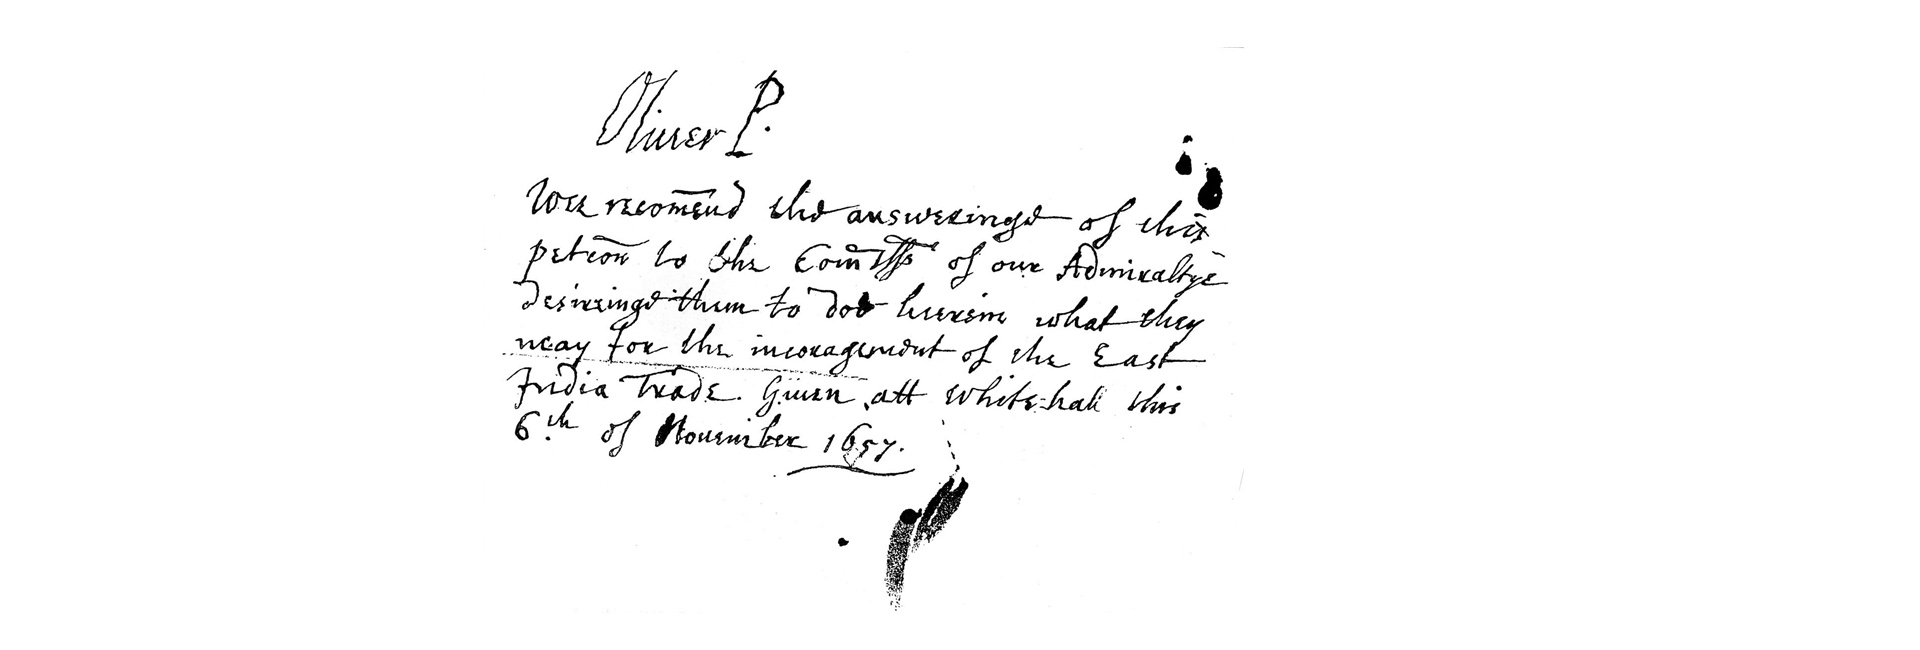 Oliver P.
Wee recomend the answeringe of this
petcon to the Comrs of our Admiraltye
desireinge them to doe herein what they
may for the incoragement of the East
India Trade. Given att White-hall this
6.th of November 1657.